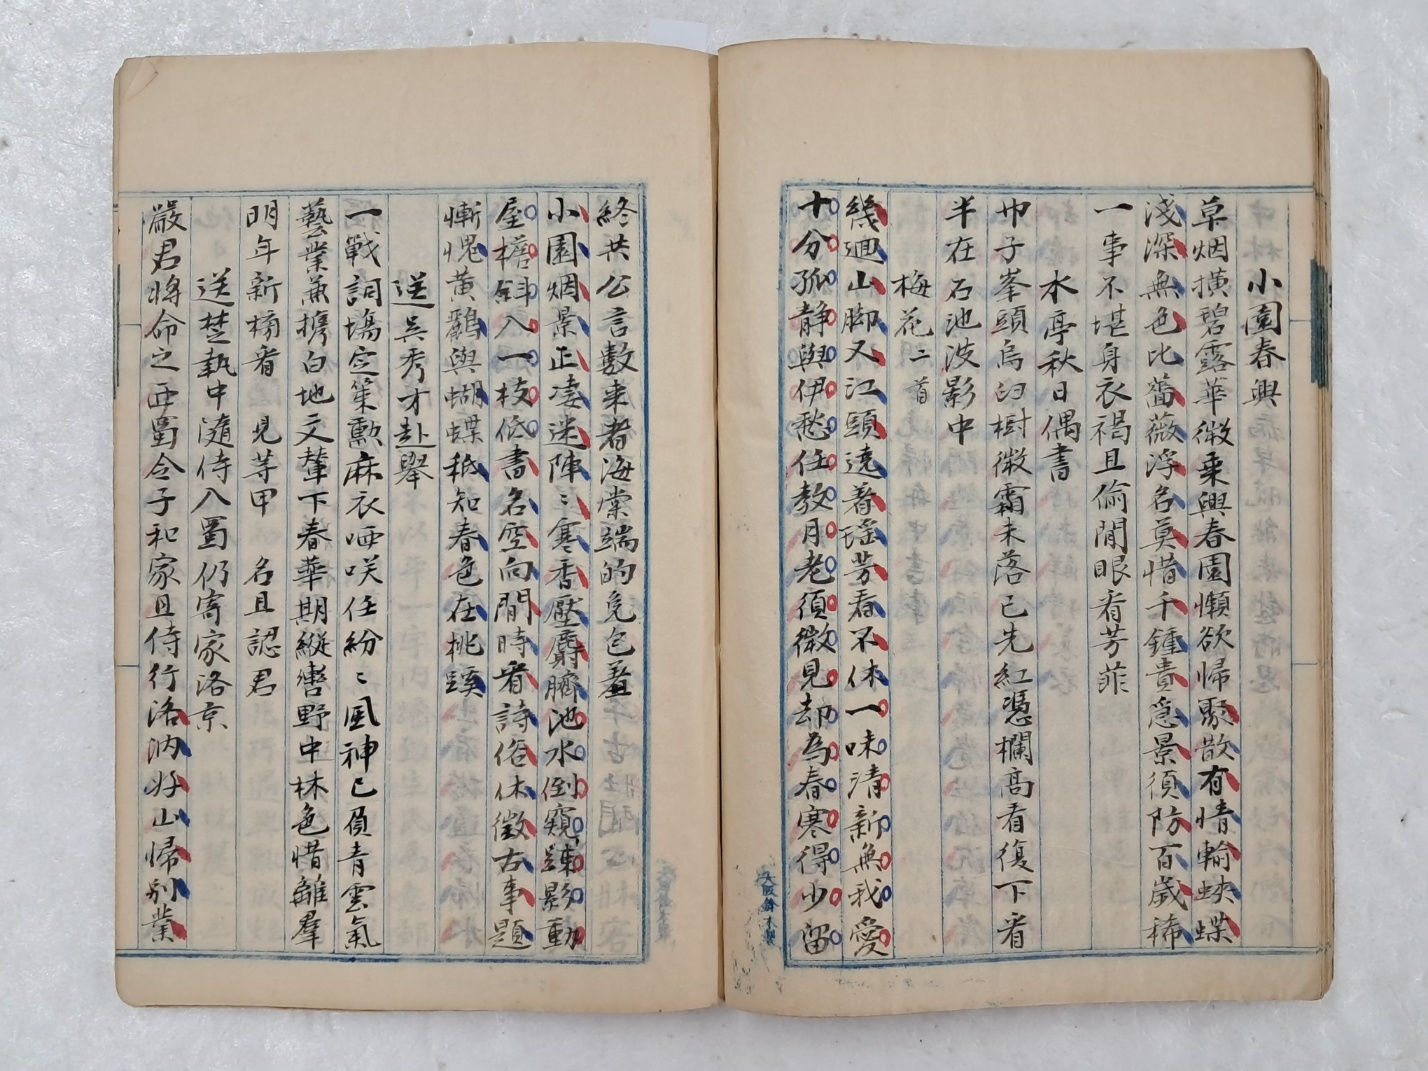 小園春興
草烟橫碧露華微乗興春園懶欲帰聚散有情輸蛺蝶
淺深無色比薔薇浮名莫惜千鍾貴急景須防百歲稀
一事不堪身衣褐且偷閒眼看芳菲
水亭秋日偶書
巾子峯頭烏臼樹微霜未落已先紅憑欄高看復下看
半在石池波影中
梅花二首
幾迴山脚又江頭遶著瑤芳看不休一味清新無我愛
十分孤静與伊愁任教月老須微見却為春寒得少留
終共公言數来者海棠端的免包羞
小園烟景正凄迷陣〻寒香壓麝臍池水倒窺踈影動
屋檐斜入一枝低畫名空向閒時看詩俗休徵古事題
慚愧黄鸝與蝴蝶秪知春色在桃蹊
送吴秀才赴舉
一戰詞場定策勲麻衣哂咲任紛〻風神已負青雲氣
藝業兼攜白地文輦下春華期縦轡野中林色惜離羣
明年新榜看 見等甲 名且認君
送楚執中隨侍入蜀仍寄家洛京
嚴君將命之西蜀令子和家且侍行洛汭好山帰別業